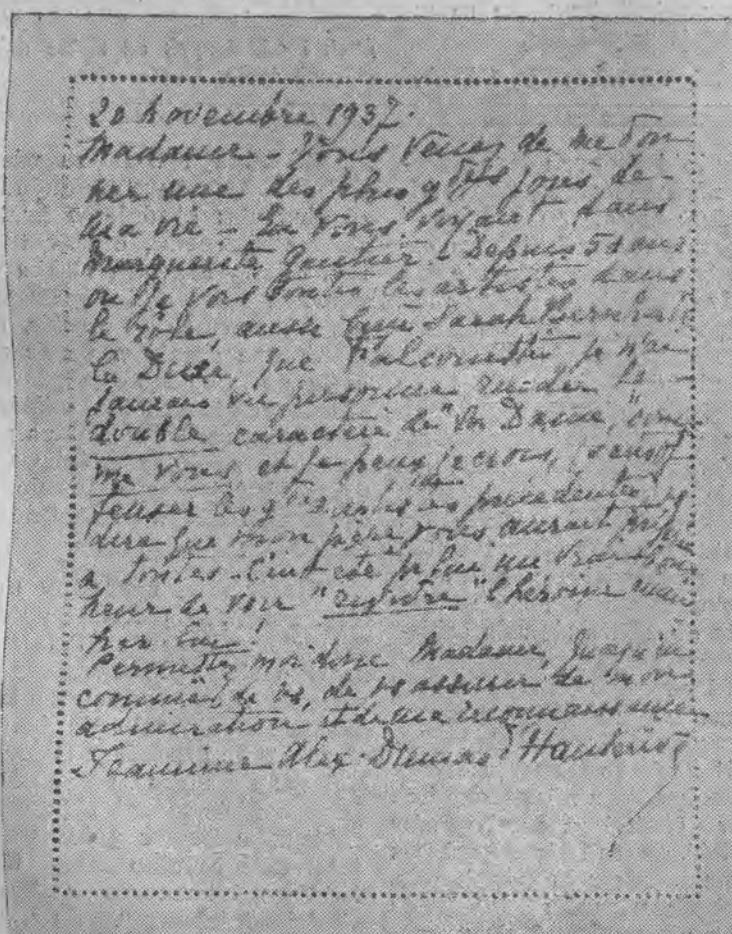 20 novembre 1937.
Madame - Vous venez de me don
ner une des plus gdes joies de
ma vie - En vous voyant dans
Marguerite Gautier - Depuis 50 ans
où je vois toutes les artistes dans
le rôle, aussi bien Sarah Bernhardt
la Duse, que Falconetti je n'ai
jamais vu personne rendre le
double caractère de "la Dame," com
me vous, et je peux je crois, sans of
fenser les gdes artistes précédentes
dire que mon père vous aurait
à toutes - C'eut été pr lui un vrai bon
heur de voir "revivre" l'héroïne
par lui!
Permettez moi donc Madame,
de vs, de vs assurer de mon
admiration et de ma reconnaissance
Jeannine Alex-Dumas d'Hauterive